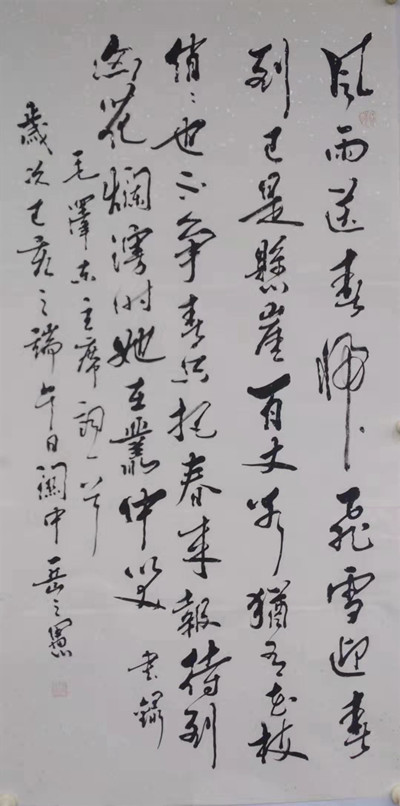 风雨送春归飞雪迎春
到已是懸崖百丈冰猶有花枝
俏〻也不争春只把春来報待到
山花爛漫时她在叢中笑 書録
毛澤东主席詞一首
歲次己亥之端午日關中岳之憲